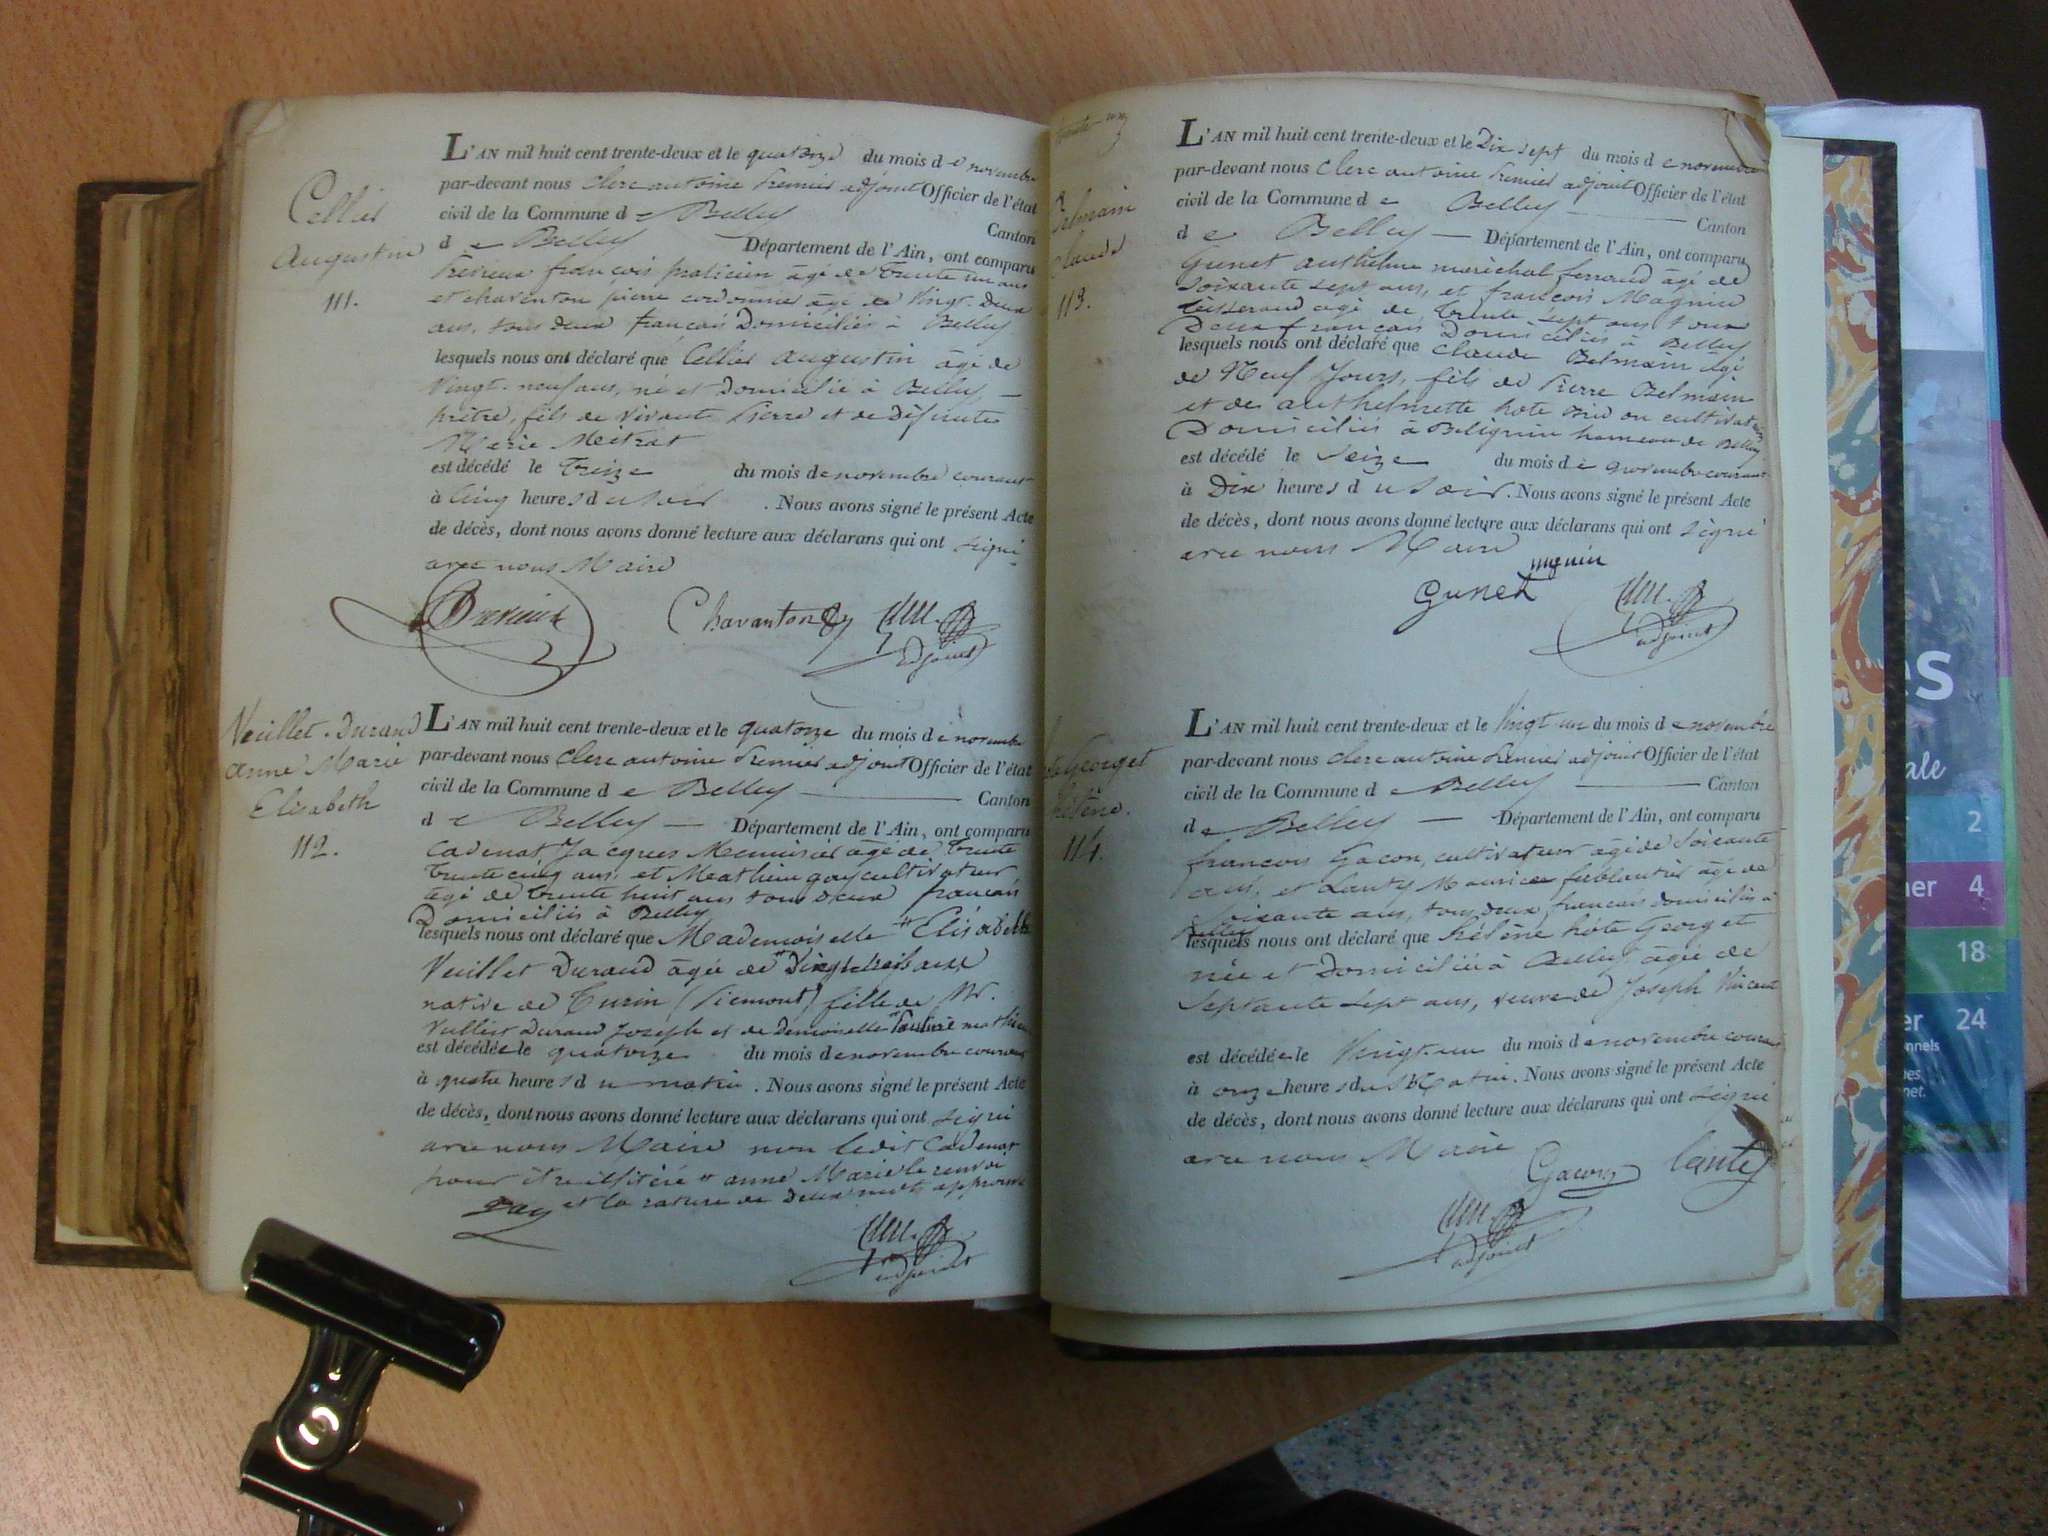 Cellier
Augustin
111.
L'AN mil huit cent trente-deux et le quatorze du mois de novembre
par-devant nous Clerc antoine Premier adjoint Officier de l'état
civil de la Commune de Belley Canton
de Belley Département de l'Ain, ont comparu
françois praticien âgé de trente un ans
et charenton pierre cordonnier âgé de vingt-deux
ans, tous deux français Domiciliés à Belley
lesquels nous ont déclaré que Cellier augustin âgé de
Vingt-neuf ans, né et Domicilié à Belley
prêtre, fils de vivant Pierre et de Défunte
Marie Meitrat
est décédé le treize du mois de novembre courant
à cinq heures du soir. Nous avons signé le présent Acte
de décès, dont nous avons donné lecture aux déclarans qui ont signé
avec nous Maire
Chavanton
adjoint
Veuillet-Durand
Anne Marie
Elisabeth
112.
L'AN mil huit cent trente-deux et le quatorze du mois de novembre
par-devant nous Clerc antoine Premier adjoint Officier de l'état
civil de la Commune de Belley Canton
de Belley Département de l'Ain, ont comparu
Cadenat Jacques Menuisier âgé de trente
trente cinq ans, et Mathieu gay cultivateur
âgé de trente huit ans tous deux français
Domiciliés à Belley
lesquels nous ont déclaré que Mademoiselle Elisabeth
Veuillet Durand âgée de
native de Turin (Piemont) fille de Mr.
Vuillet Durand Joseph et de demoiselle
est décédée le quatorze du mois de novembre courant
à quatre heures du matin. Nous avons signé le présent Acte
de décès, dont nous avons donné lecture aux déclarans qui ont signé
avec nous Maire non ledit Cadenat
pour être illitéré anne Marie le renvoi
et la rature de deux mots approuvé
Gay
adjoint
Belmain
Claude
113.
L'AN mil huit cent trente-deux et le Dix sept du mois de novembre
par-devant nous Clerc antoine Premier adjoint Officier de l'état
civil de la Commune de Belley Canton
de Belley Département de l'Ain, ont comparu
Gunet anthelme maréchal ferrand âgé de
soixante sept ans, et françois Magnin
tisserand âgé de trente sept ans tous
Deux français Domiciliés à Belley
lesquels nous ont déclaré que Claude Belmain âgé
de Neuf Jours, fils de Pierre Belmain
et de anthelmette cultivateurs
Domiciliés à Belignin hameau de Belley
est décédé le Seize du mois de novembre courant
à Dix heures du soir. Nous avons signé le présent Acte
de décès, dont nous avons donné lecture aux déclarans qui ont signé
avec nous Maire
Gunet
adjoint
Georget
hélène.
114.
L'AN mil huit cent trente-deux et le Vingt un du mois de novembre
par-devant nous Clerc antoine Premier adjoint Officier de l'état
civil de la Commune de Belley Canton
de Belley Département de l'Ain, ont comparu
françois Gacon, cultivateur âgé de soixante
ans, et Lanty Maurice ferblantier âgé de
Soixante ans, tous deux français domiciliés à
Belley
lesquels nous ont déclaré que hélène Georget
née et Domiciliée à Belley âgée de
Septante sept ans, veuve de Joseph Vincent
est décédée le Vingt un du mois de novembre courant
à onze heures du Matin. Nous avons signé le présent Acte
de décès, dont nous avons donné lecture aux déclarans qui ont signé
avec nous Maire
Gacon Lanty
adjoint
es
ale
2
her 4
18
er 24